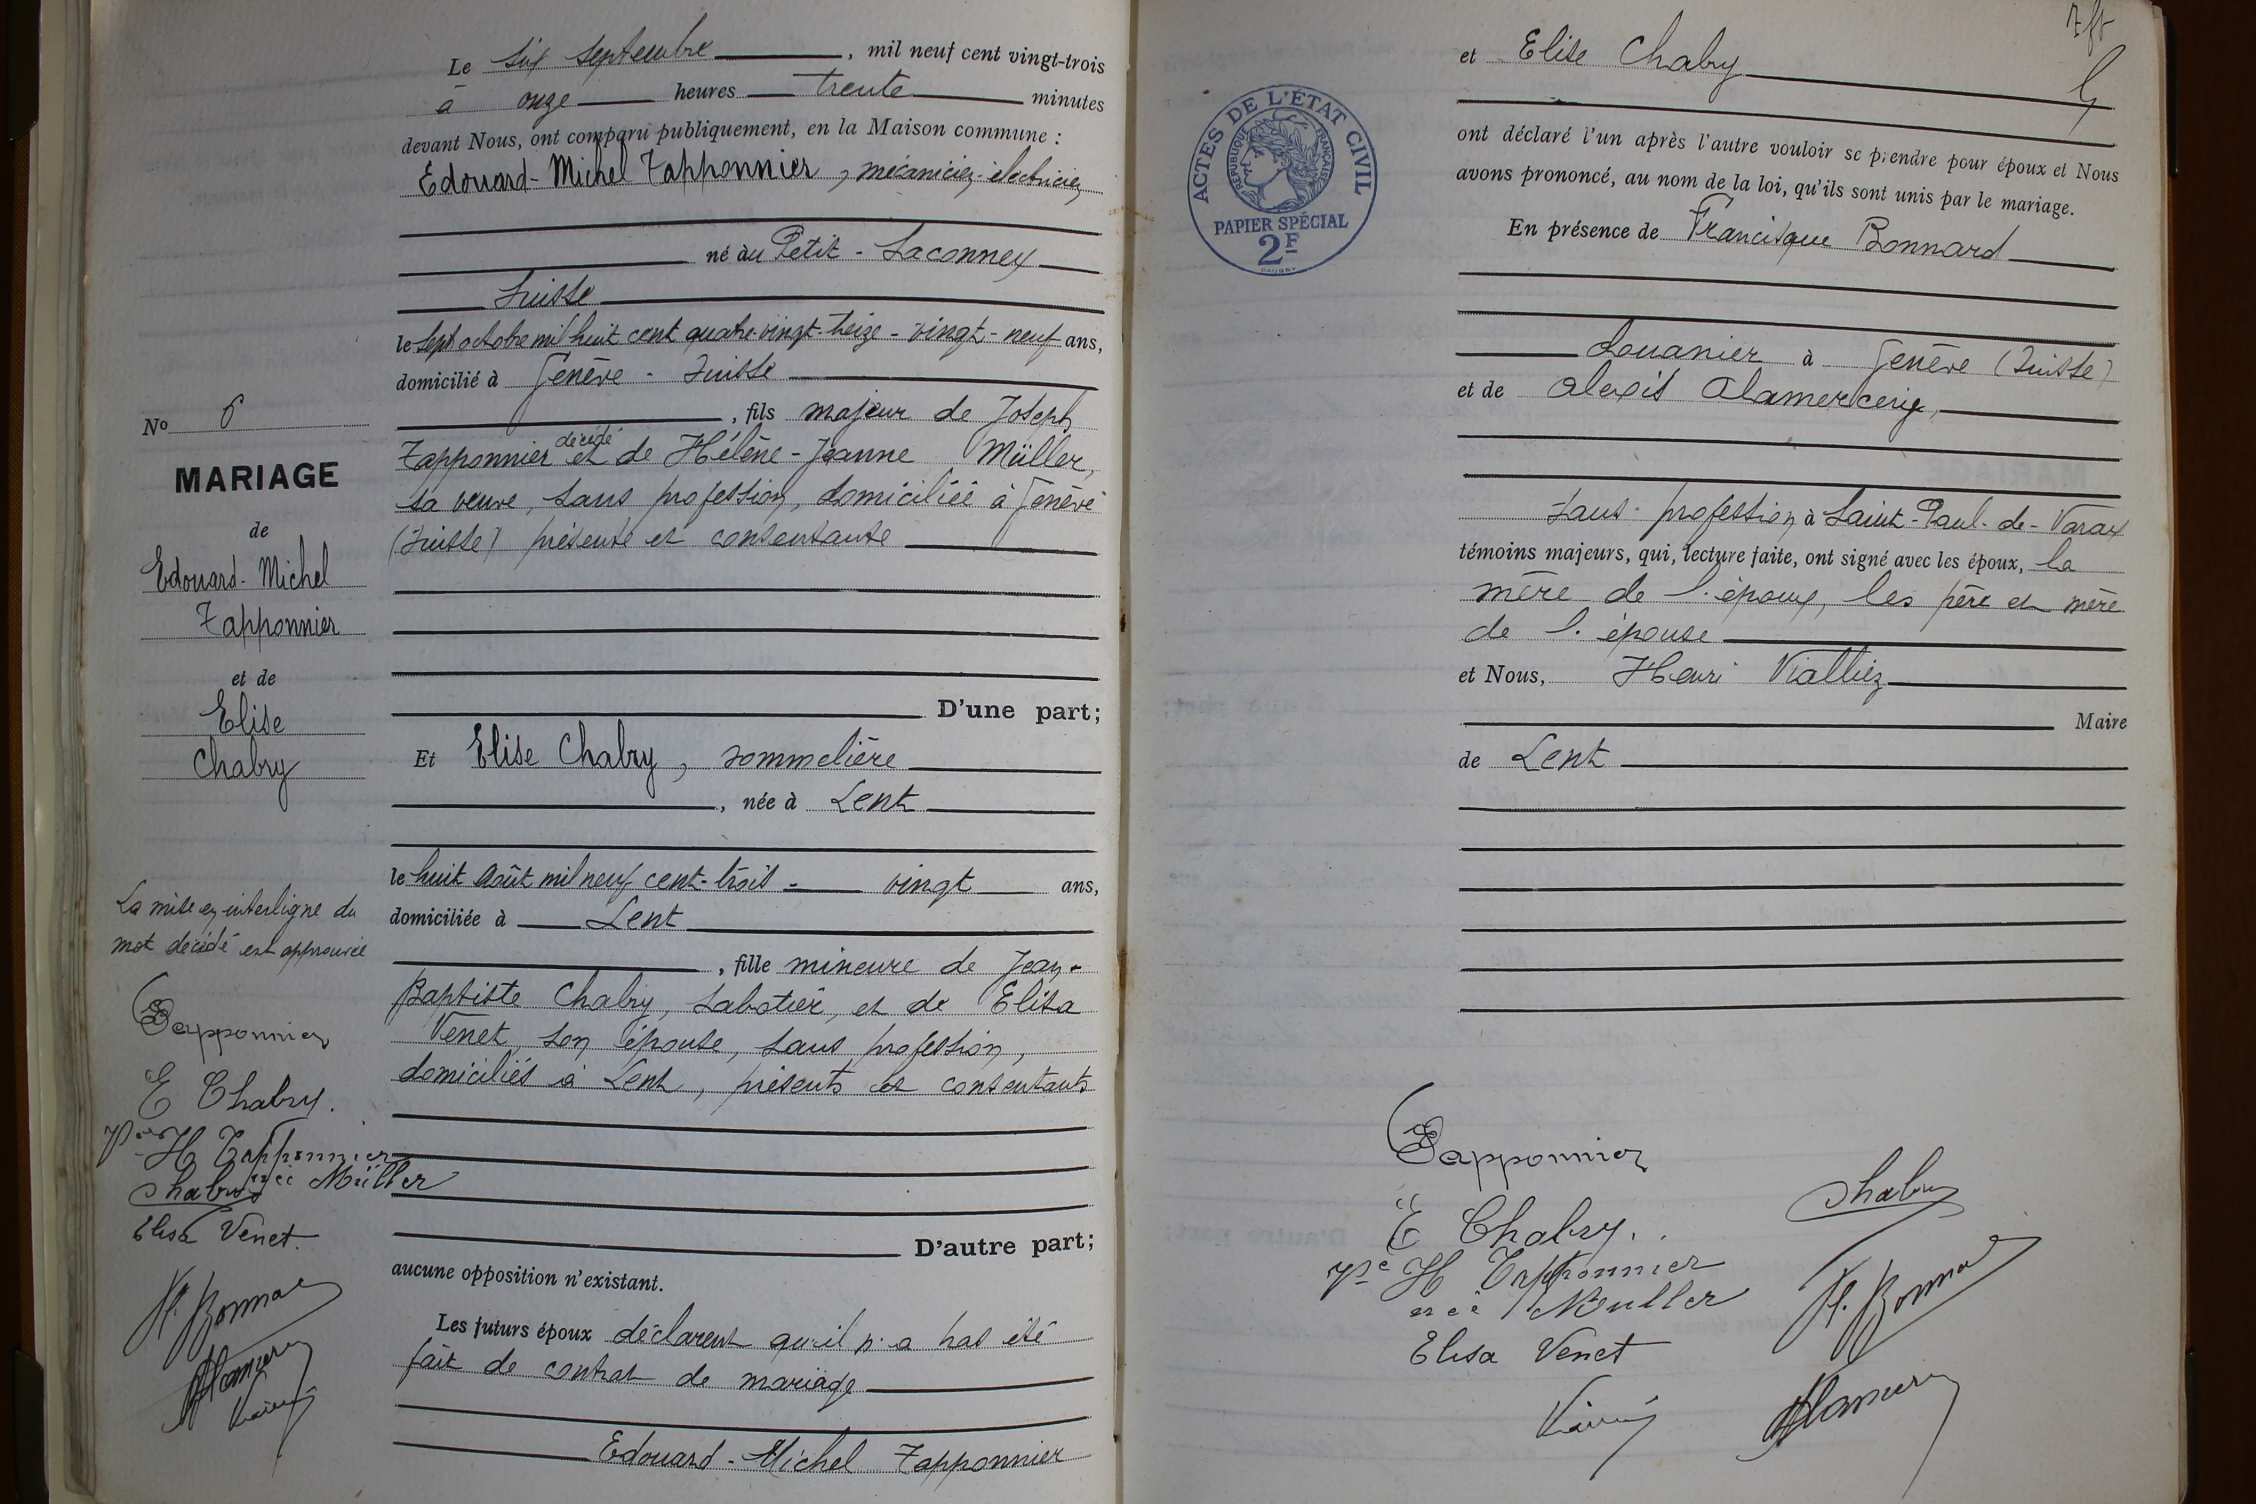 Le six septembre, mil neuf cent vingt-trois
à onze heures trente minutes
devant Nous, ont comparu publiquement, en la Maison commune :
Edouard-Michel Tapponnier, mécanicien-électricien
né au Petit-Saconnex
Suisse
le sept octobre mil huit cent quatre-vingt-treize - vingt-neuf ans,
domicilié à Genève - Suisse
, fils majeur de Joseph
décédé
Tapponnier et de Hélène-Jeanne Müller,
sa veuve, sans profession, domiciliée à Genève
(Suisse) présente et consentante
D'une part;
Et Elise Chabry, sommelière
, née à Lent
le huit Août mil neuf cent-trois - vingt ans,
domiciliée à Lent
, fille mineure de Jean-
Baptiste Chabry, sabotier, et de Elisa
Venet, son épouse, sans profession,
domiciliés à Lent, présents et consentants
D'autre part;
aucune opposition n'existant.
Les futurs époux déclarent qu'il n'a pas été
fait de contrat de mariage
Edouard-Michel Tapponnier
No 6
MARIAGE
de
Edouard-Michel
Tapponnier
et de
Elise
Chabry
La mise en interligne du
mot décédé est approuvée
Tapponnier
E Chabry.
Vve H Tapponnier
née Müller
Chabry
Elisa Venet
F. Bonnard
7 ft
et Elise Chabry
ont déclaré l'un après l'autre vouloir se prendre pour époux et Nous
avons prononcé, au nom de la loi, qu'ils sont unis par le mariage.
En présence de Francisque Bonnard
douanier à Genève (Suisse)
et de Alexis Alamercery,
sans profession à Saint-Paul-de-Varax
témoins majeurs, qui, lecture faite, ont signé avec les époux, la
mère de l'époux, les père et mère
de l'épouse
et Nous, Henri Vialliez
Maire
de Lent
ACTES DE L'ÉTAT CIVIL
RÉPUBLIQUE FRANÇAISE
PAPIER SPÉCIAL
2F
Tapponnier
Chabry
E Chabry.
Vve H Tapponnier
née Muller
F. Bonnard
Elisa Venet